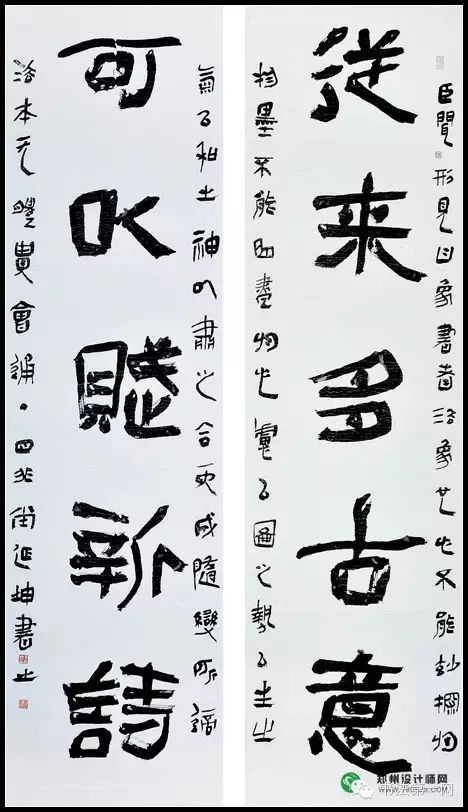 臣聞形見曰象書者法象也心不能妙探於
從來多古意
物墨不能曲盡於心慮以圖之勢以生之
氣以和之神以肅之合而成隨變所適
可以賦新詩
法本无體貴會通
延坤書
郑州设计师网